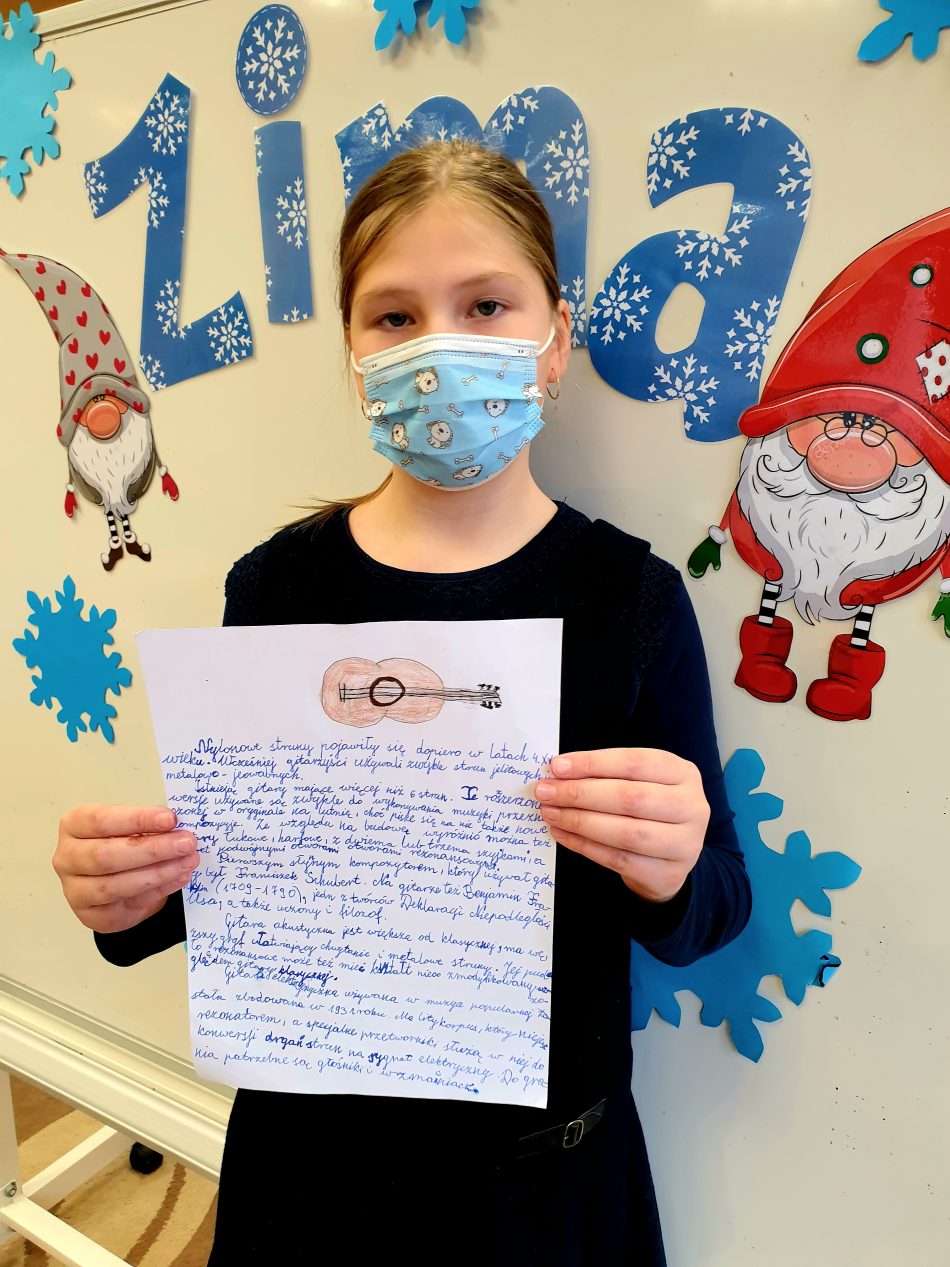 zima
Nylonowe struny pojawiły się dopiero w latach 4. XX
wieku. Wcześniej gitarzyści używali zwykle strun jelitowych
metalowo - jedwabnych.
Istnieją gitary mające więcej niż 6 strun. Te rozszerzone
wersje używane są zwykle do wykonywania muzyki przezna
czonej w oryginale na lutnię, choć pisze się na nie także nowe
kompozycje. Ze względu na budowę wyróżnić można też
łukowe, harfowe, z dwiema lub trzema szyjkami, a
podwójnymi otworami otworami rezonansowymi.
Pierwszym słynym kompozytorem, który używał gita
ry był Franciszek Schubert. Na gitarke też Benjamin Fra-
klin (1709-1790), jedn z twórców Deklaracji Niepodległości
Usa, a także uczony i filozof.
Gitara akustyczna jest większa od klasycznej, ma wę
ższy gryf ułatwiający chwytanie i metalowe struny. Jej pudł
o rezonansowe może też mieć kształt nieco zmodyfikowany
względem gitary klasycznej.
Gitara elektryczna używana w muzyce popularnej zo
stała zbudowana w 1931 roku. Ma lity korpus, który nie jest
rezonatorem, a specjalne przetworniki służą w niej do
konwersji drgań strun na sygnał elektryczny. Do gra
nia potrzebne są głośniki i wzmaniack.